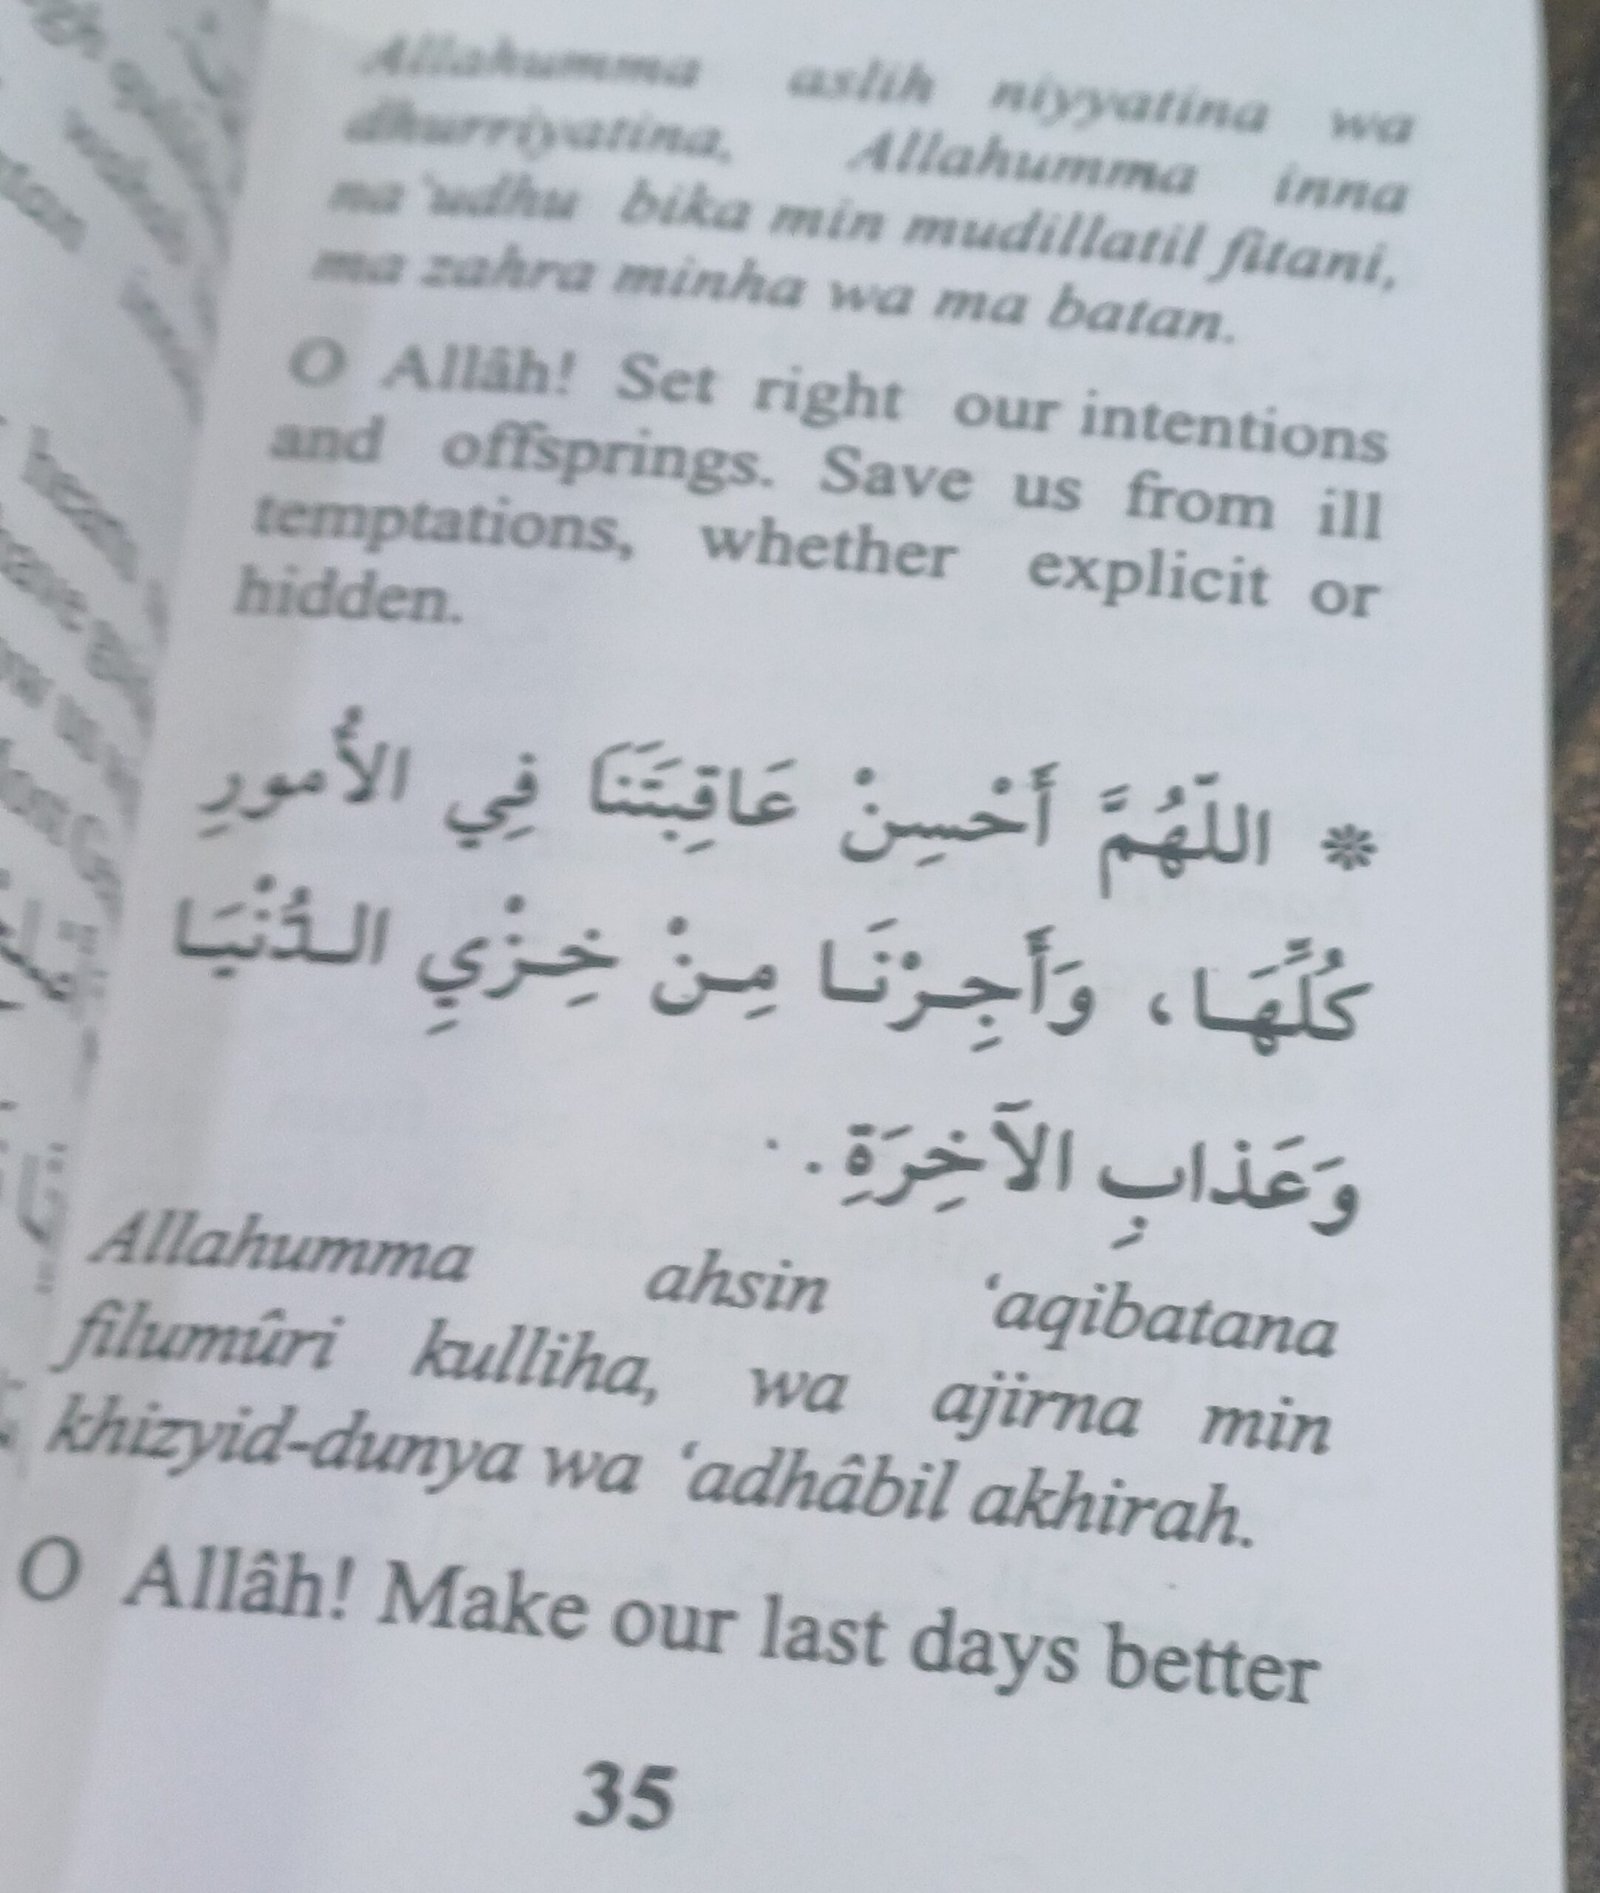 Allahumma aslih niyyatina wa
dhurriyatina, Allahumma inna
na'udhu bika min mudillatil fitani,
ma zahra minha wa ma batan.
O Allâh! Set right our intentions
and offsprings. Save us from ill
temptations, whether explicit or
hidden.
❊ اللّهُمَّ أَحْسِنْ عَاقِبَتَنَا فِي الأُمورِ
كُلِّهَا، وَأَجِرْنَا مِنْ خِزْيِ الدُّنْيَا
وَعَذابِ الآخِرَةِ.
Allahumma ahsin ‘aqibatana
filumûri kulliha, wa ajirna min
khizyid-dunya wa ‘adhâbil akhirah.
O Allâh! Make our last days better
35